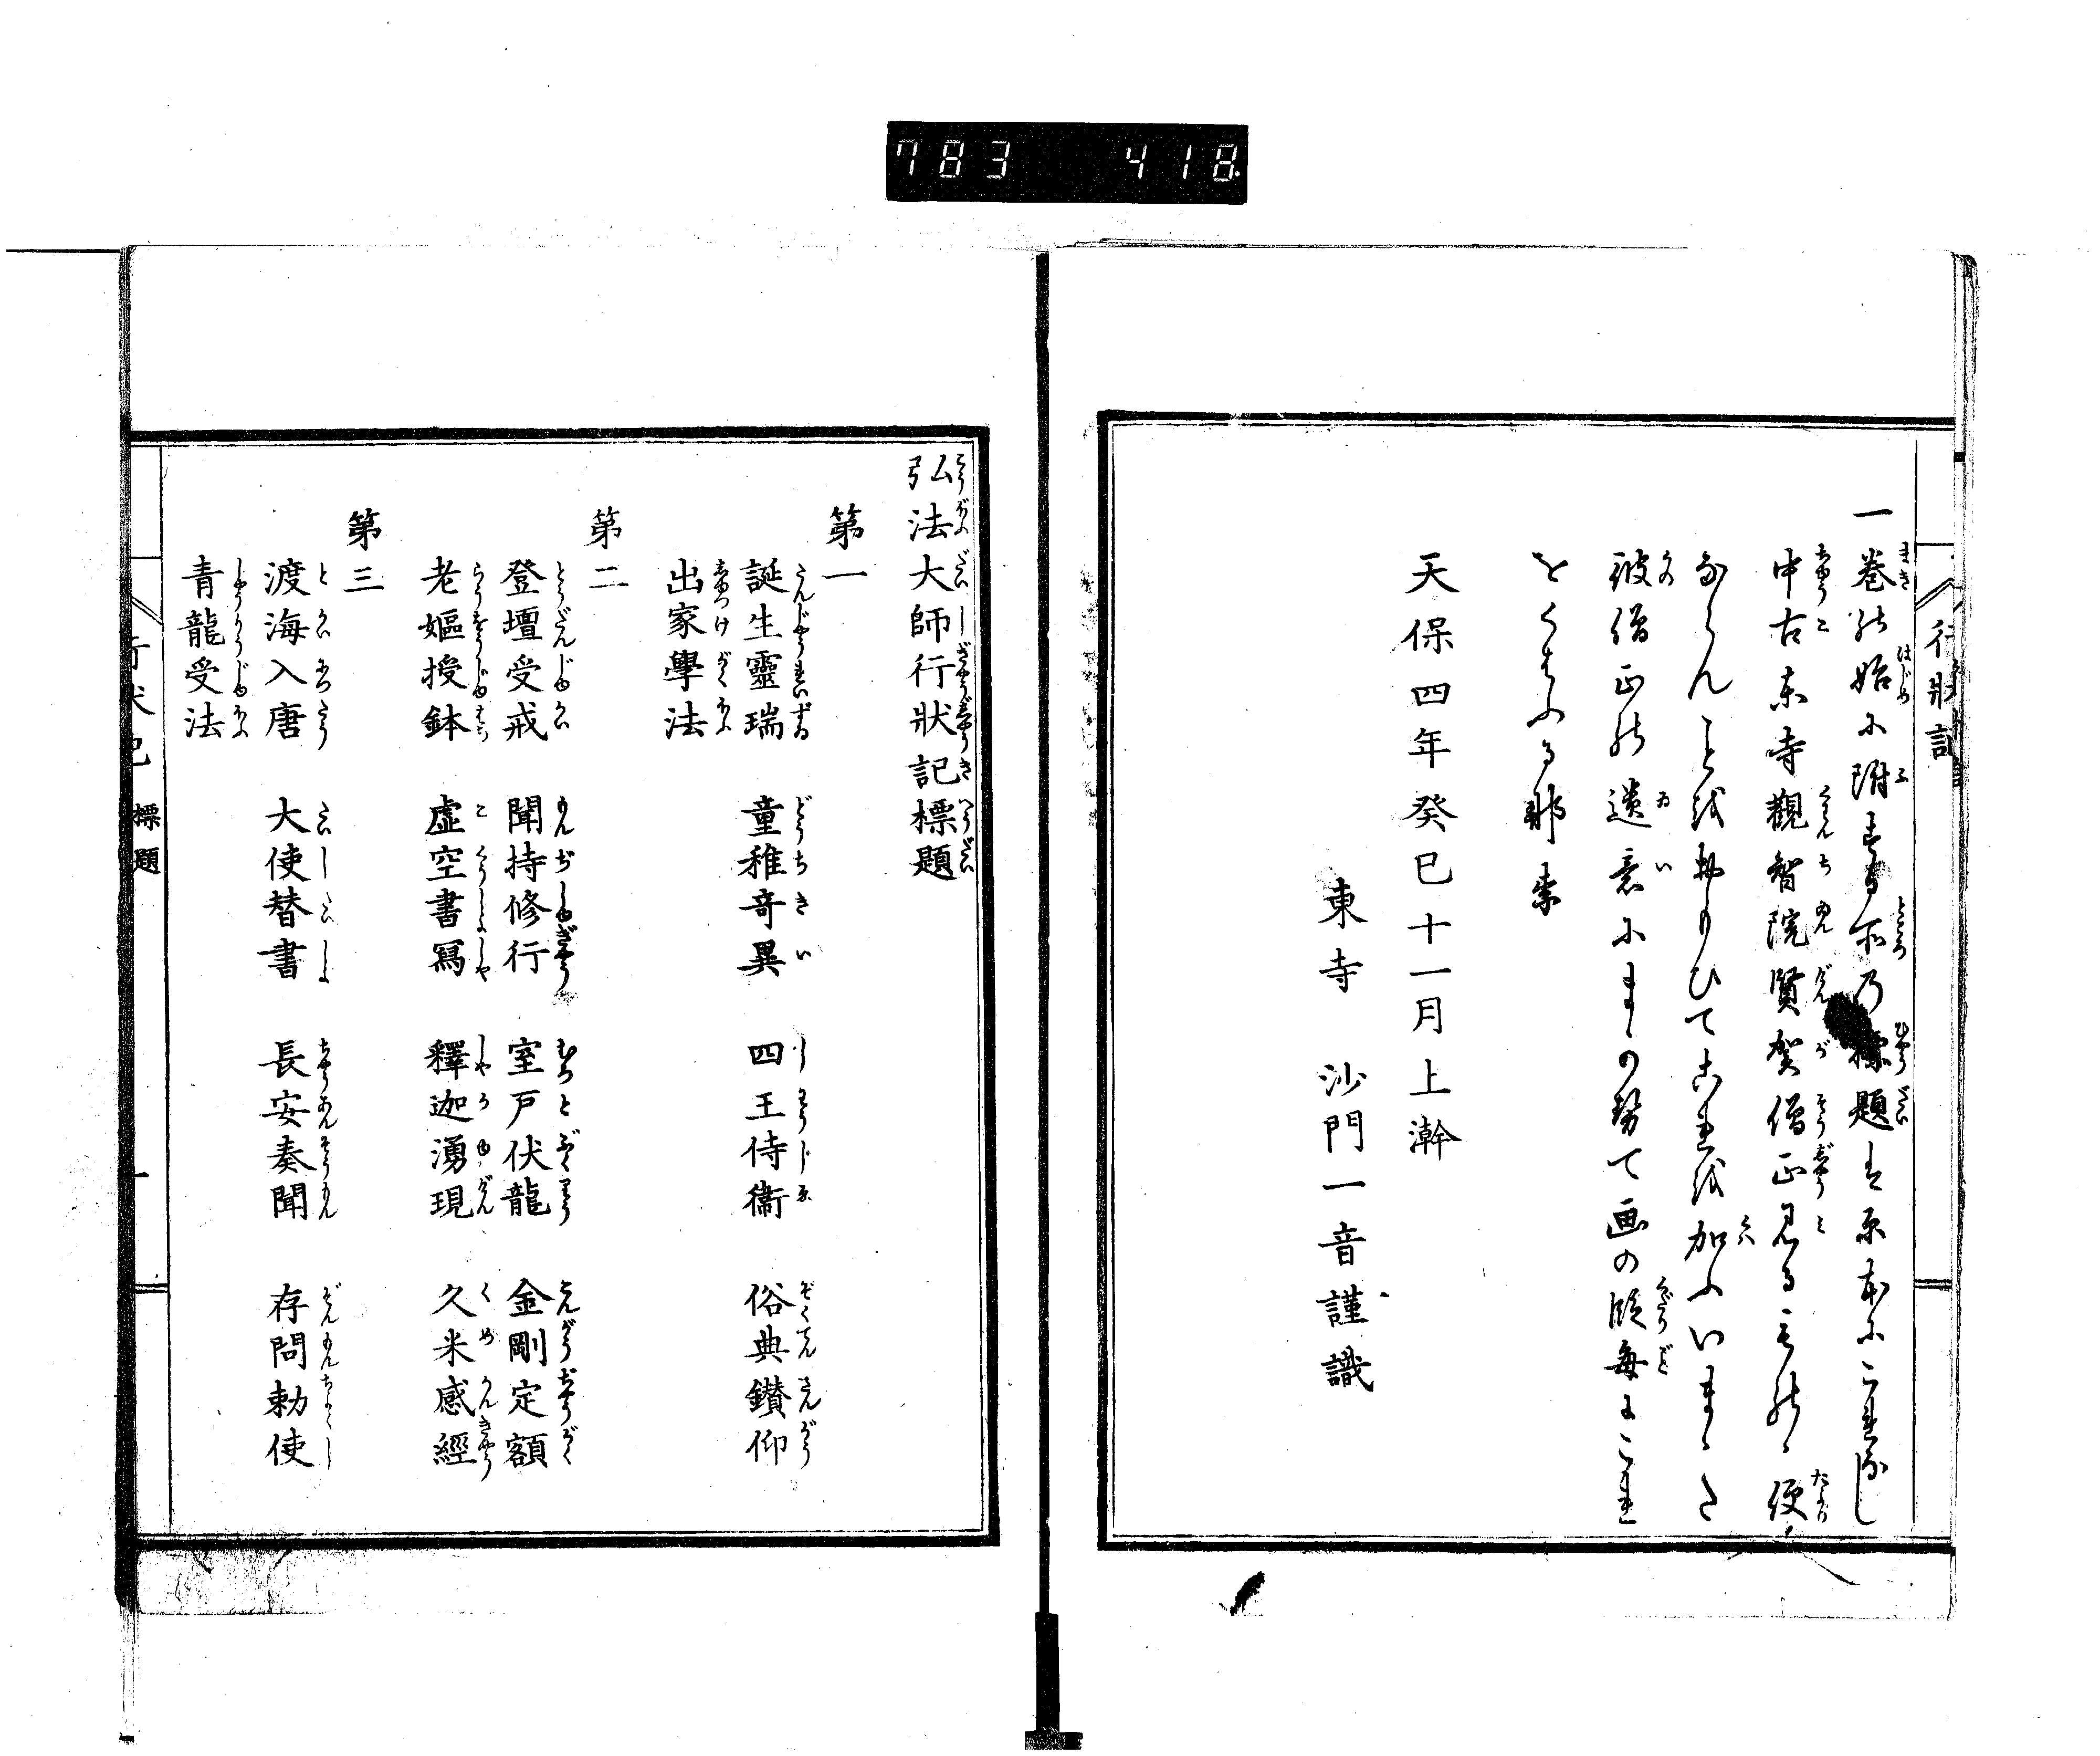 783 418
行狀記
一卷の始に附する所の標題は原本にこれなし
中古東寺觀智院賢賀僧正見る者の便
ならんことを勅りひてこれを加ふいまゝた
彼僧正の遺意にまかせて画の段毎にこれ
をくはふる耶
天保四年癸巳十一月上澣
東寺 沙門一音謹識
弘法大師行狀記標題
第一
誕生靈瑞 童稚奇異 四王侍衞 俗典鑚仰
出家學法
第二
登壇受戒 聞持修行 室戸伏龍 金剛定額
老嫗授鉢 虚空書寫 釋迦湧現 久米感經
第三
渡海入唐 大使替書 長安奏聞 存問勅使
青龍受法
行狀記 標題 一